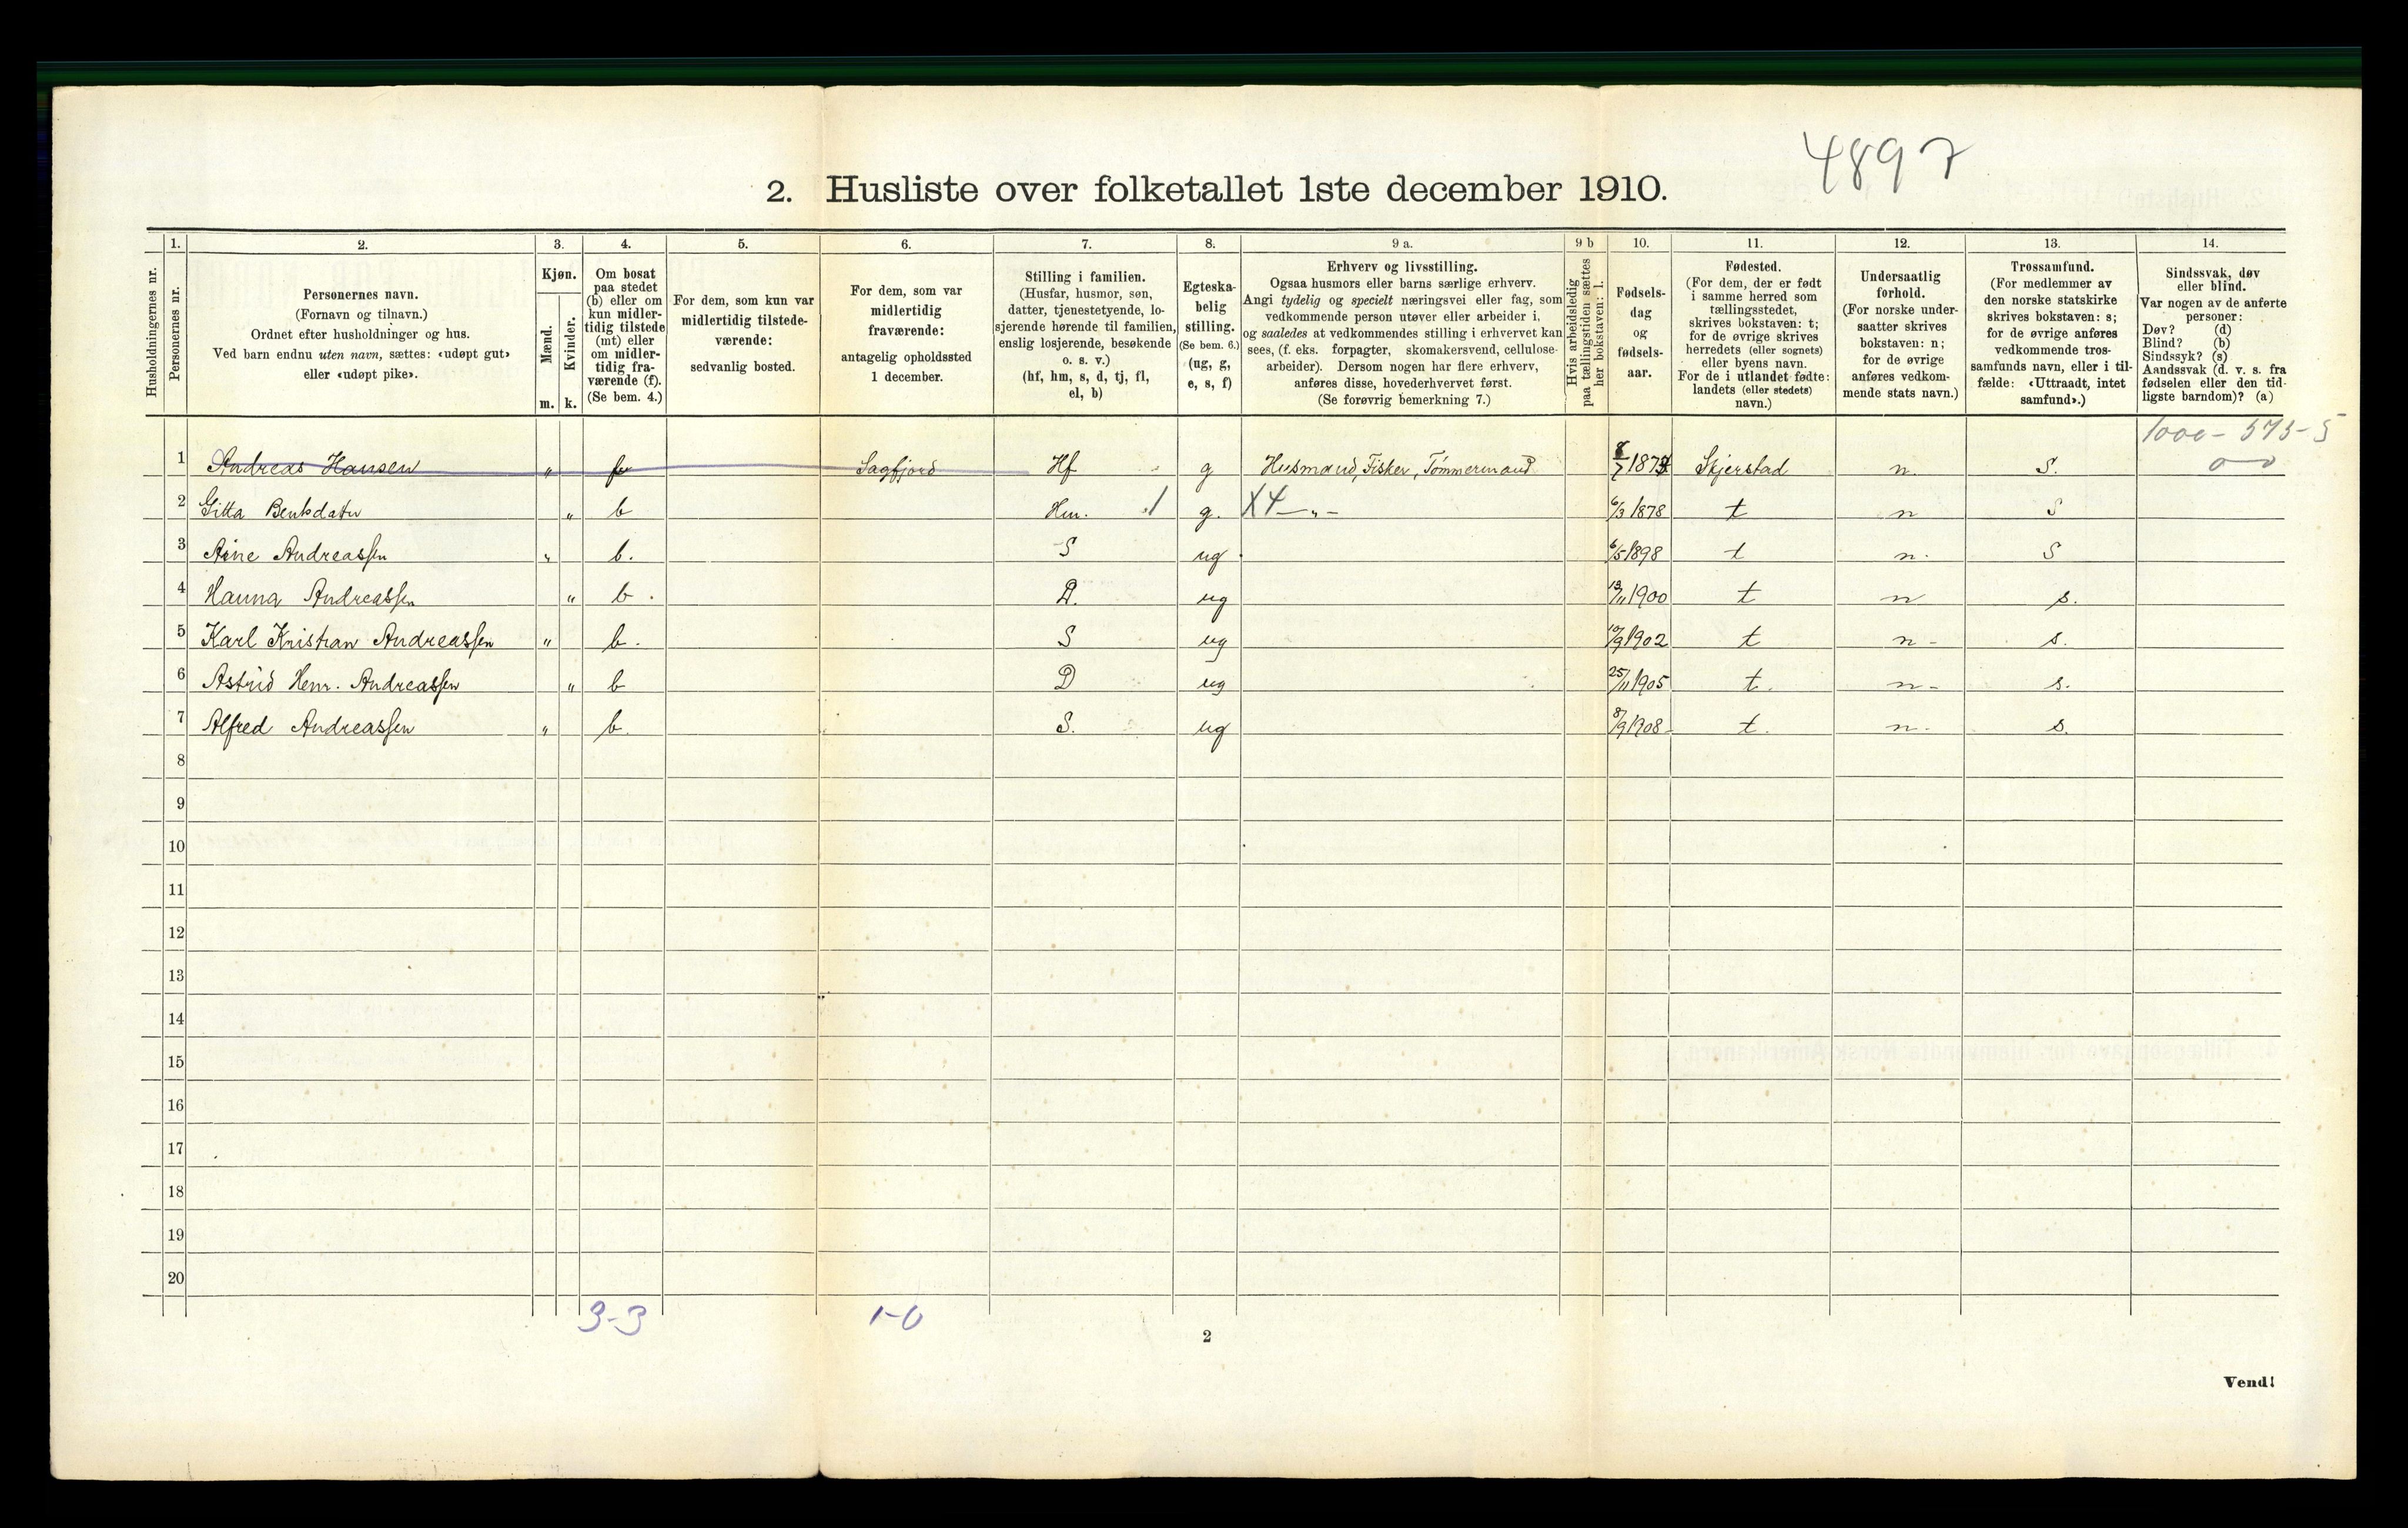 4897
2. Husliste over folketallet 1ste december 1910.
Husholdningernes nr.
1. Personernes nr.
2. Personernes navn.
(Fornavn og tilnavn.)
Ordnet efter husholdninger og hus.
Ved barn endnu uten navn, sættes: «udøpt gut»
eller «udøpt pike».
3. Kjøn.
Mænd. m.
Kvinder. k.
4. Om bosat
paa stedet
(b) eller om
kun midler-
tidig tilstede
(mt) eller
om midler-
tidig fra-
værende (f).
(Se bem. 4.)
5. For dem, som kun var
midlertidig tilstede-
værende:
sedvanlig bosted.
6. For dem, som var
midlertidig
fraværende:
antagelig opholdssted
1 december.
7. Stilling i familien.
(Husfar, husmor, søn,
datter, tjenestetyende, lo-
sjerende hørende til familien,
enslig losjerende, besøkende
o. s. v.)
(hf, hm, s, d, tj, fl,
el, b)
8. Egteska-
belig
stilling.
(Se bem. 6.)
(ug, g,
e, s, f)
9 a. Erhverv og livsstilling.
Ogsaa husmors eller barns særlige erhverv.
Angi tydelig og specielt næringsvei eller fag, som
vedkommende person utøver eller arbeider i,
og saaledes at vedkommendes stilling i erhvervet kan
sees, (f. eks. forpagter, skomakersvend, cellulose-
arbeider). Dersom nogen har flere erhverv,
anføres disse, hovederhvervet først.
(Se forøvrig bemerkning 7.)
9 b Hvis arbeidsledig
paa tællingstiden sættes
her bokstaven: l.
10. Fødsels-
dag
og
fødsels-
aar.
11. Fødested.
(For dem, der er født
i samme herred som
tællingsstedet,
skrives bokstaven: t;
for de øvrige skrives
herredets (eller sognets)
eller byens navn.
For de i utlandet fødte:
landets (eller stedets)
navn.)
12. Undersaatlig
forhold.
(For norske under-
saatter skrives
bokstaven: n;
for de øvrige
anføres vedkom-
mende stats navn.)
13. Trossamfund.
(For medlemmer av
den norske statskirke
skrives bokstaven: s;
for de øvrige anføres
vedkommende tros-
samfunds navn, eller i til-
fælde: «Uttraadt, intet
samfund».)
14. Sindssvak, døv
eller blind.
Var nogen av de anførte
personer:
Døv? (d)
Blind? (b)
Sindssyk? (s)
Aandssvak (d. v. s. fra
fødselen eller den tid-
ligste barndom)? (a)
1000 - 575 - 5
0 - 0
1 Andreas Hansen " Sagfjord Hf g Husmand, Fisker, Tømmermand Skjerstad n. S.
2 Gitta Benksdatr " b Hm. 1 g. X4 - " - 6/3 1878 t n S
3 Arne Andreassen " b. S ug 6/5 1898 t n. S
4 Hanna Andreassen " b. D. ug 13/11 1900 t n s.
5 Karl Kristian Andreassen " b. S ug 10/9 1902 t n- s.
6 Astrid Henr. Andreassen " b D ug 25/11 1905 t. n- s.
7 Alfred Andreassen " b. S. ug 8/9 1908 t. n. s.
8
9
10
11
12
13
14
15
16
17
18
19
20
3-3 1-0
2
Vend!